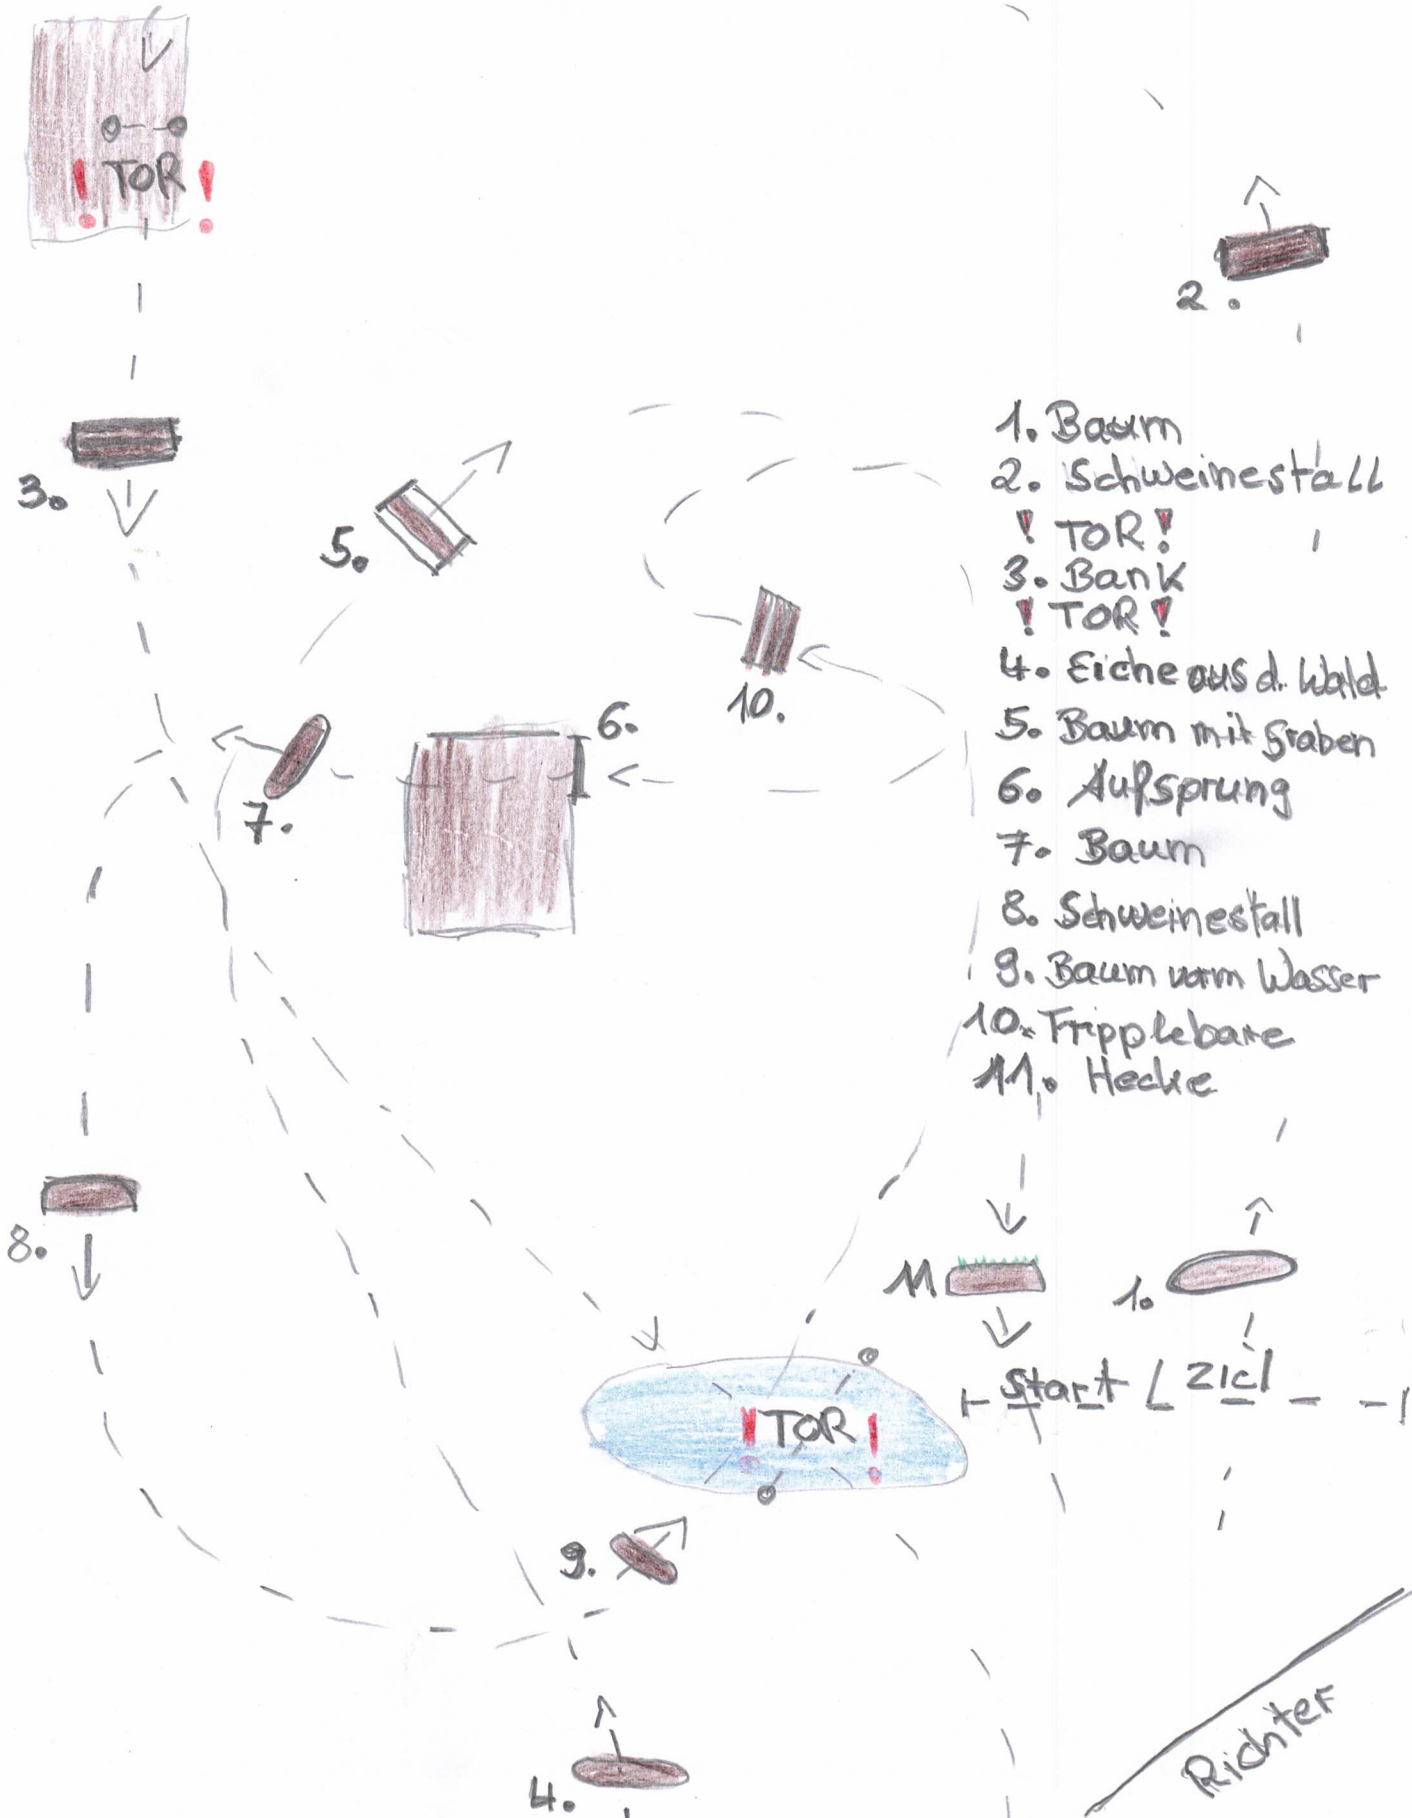 ! TOR !
2.
3.
1. Baum
2. Schweinestall
! TOR !
3. Bank
! TOR !
4. Eiche aus d. Wald
5. Baum mit Graben
6. Aufsprung
7. Baum
8. Schweinestall
9. Baum vorm Wasser
10. Tripplebare
11. Hecke
5.
10.
6.
7.
8.
11
1.
Start / Ziel
! TOR !
9.
4.
Richter